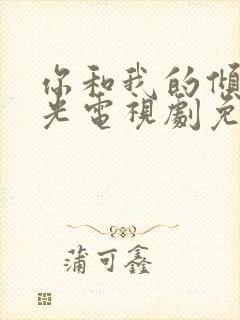 你和我的傾
光電視劇免
蒲可鑫